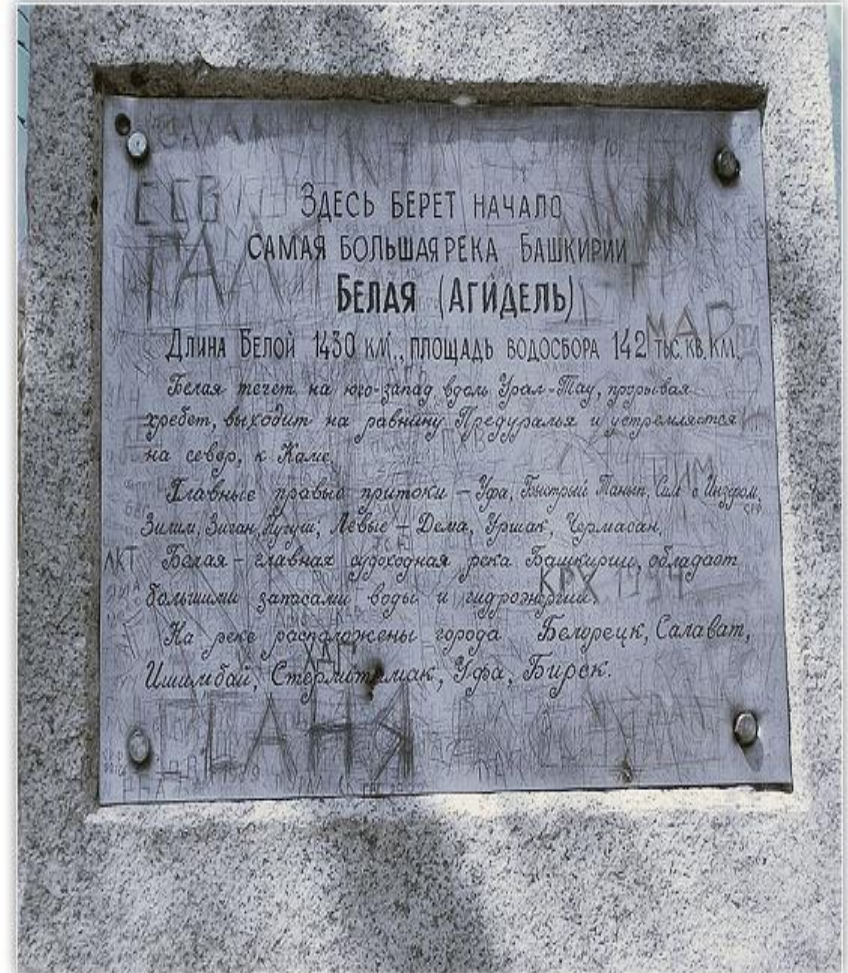 Здесь берет начало
самая большая река Башкирии
Белая (Агидель)
Длина Белой 1430 км., площадь водосбора 142 тыс. кв. км.
Белая течет на юго-запад вдоль Урал-Тау, прорывая
хребет, выходит на равнину Предуралья и устремляется
на север, к Каме.
Главные правые притоки – Уфа, Быстрый Танып, Сим с Инзером,
Зилим, Зиган, Нугуш, Левые – Дема, Уршак, Чермасан.
Белая – главная судоходная река Башкирии, обладает
большими запасами воды и гидроэнергии.
На реке расположены города Белорецк, Салават,
Ишимбай, Стерлитамак, Уфа, Бирск.